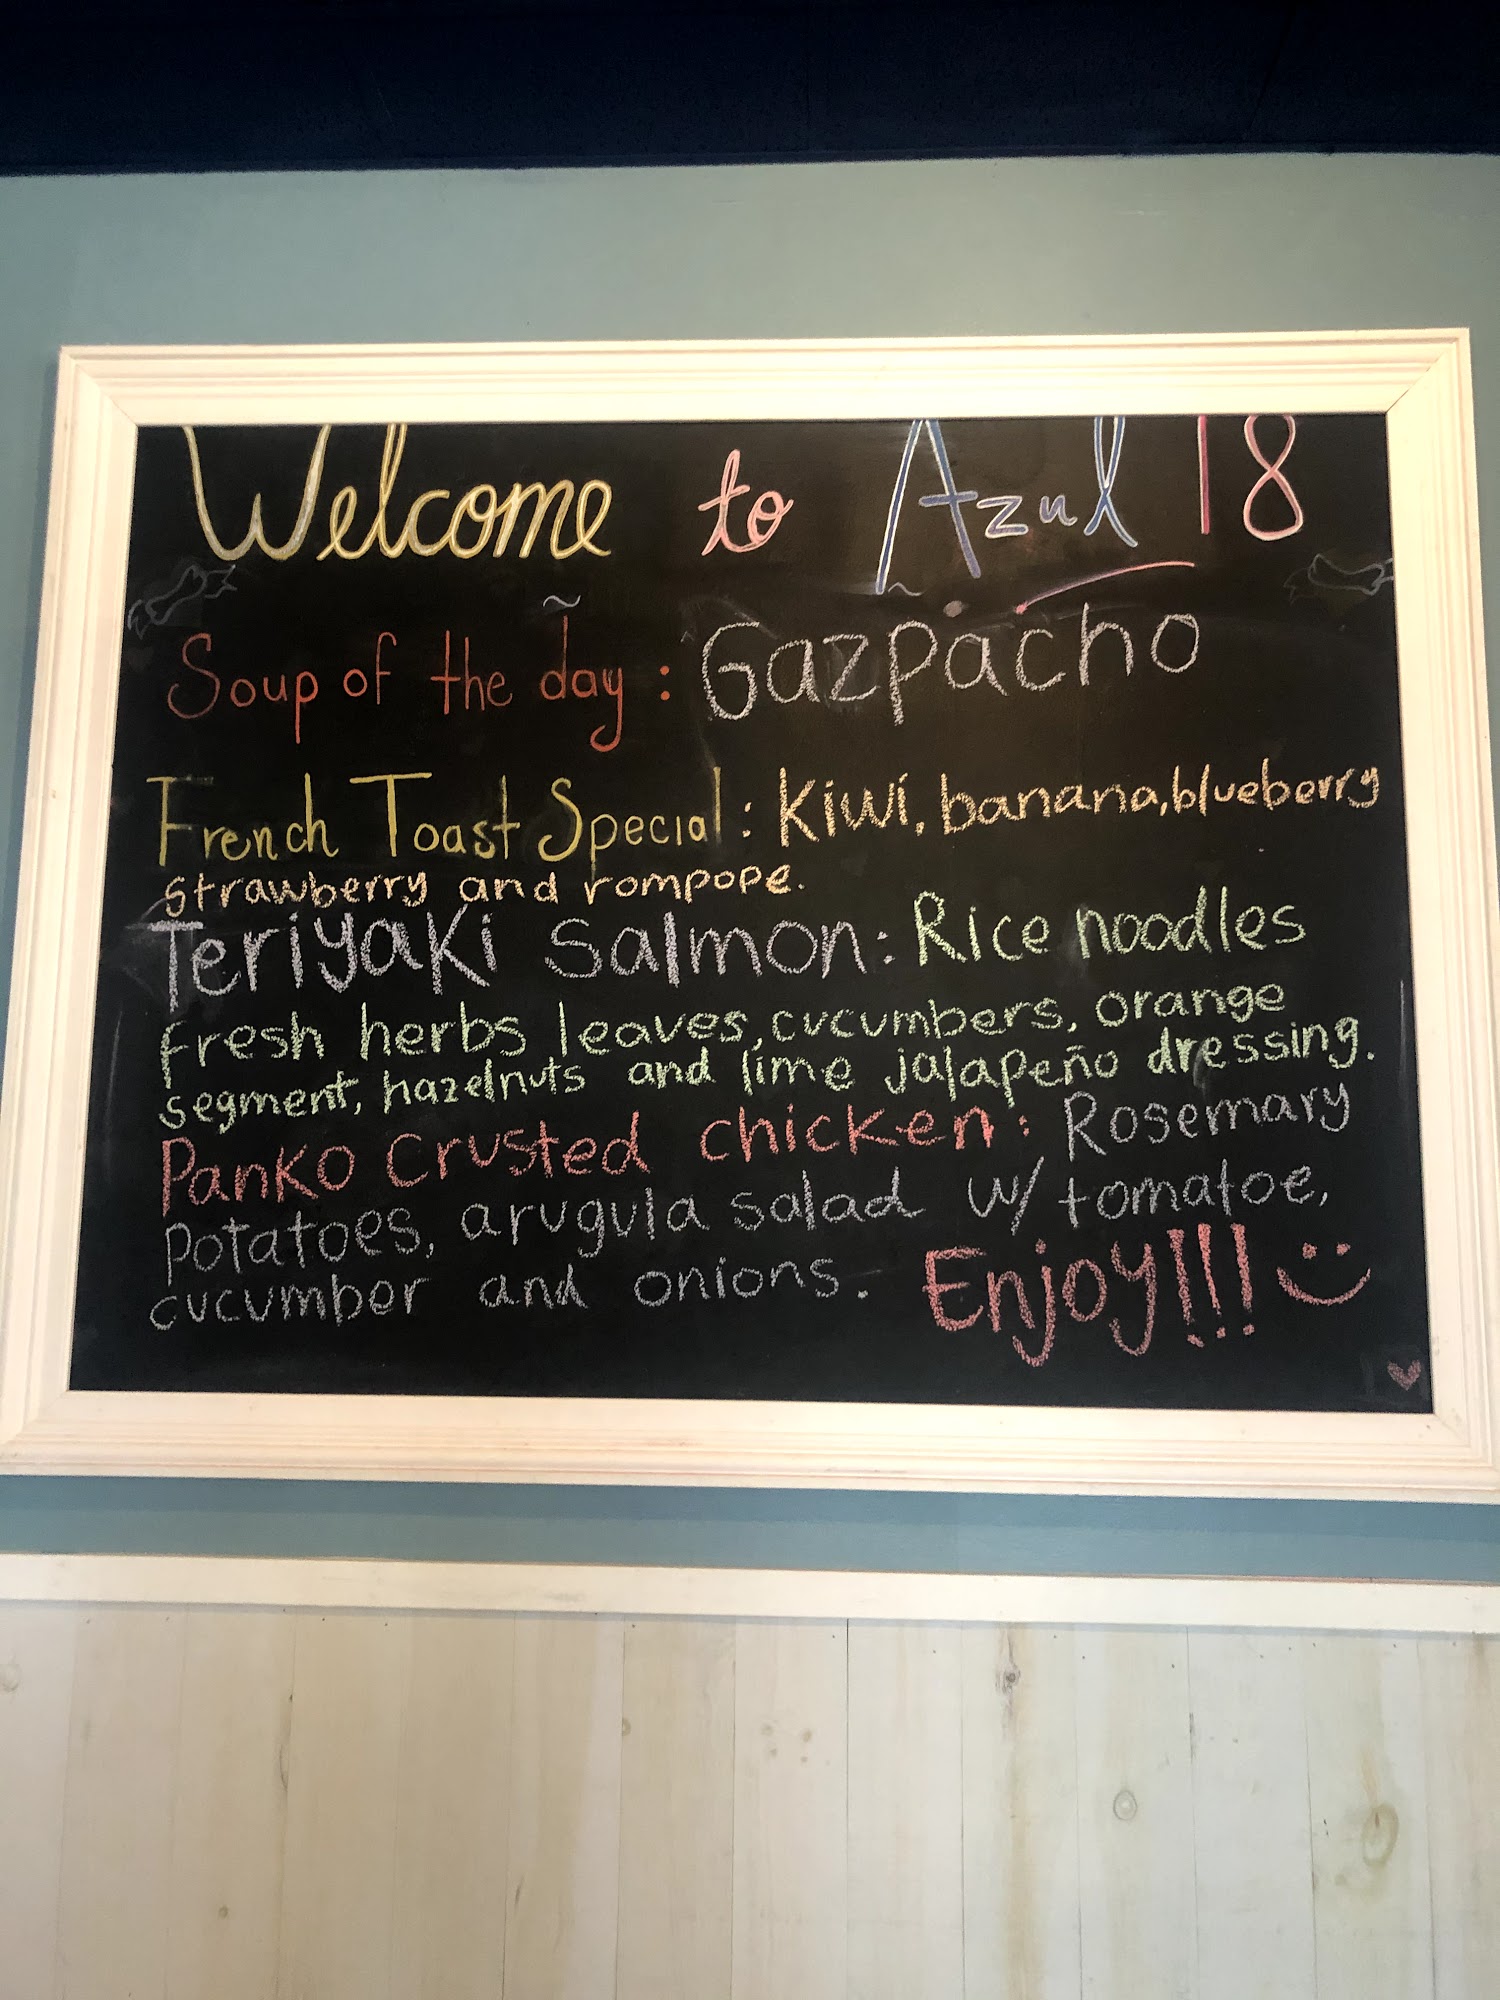 Welcome to Azul 18
Soup of the day : Gazpacho
French Toast Special : Kiwi, banana, blueberry
strawberry and rompope.
Teriyaki Salmon: Rice noodles
Fresh herbs leaves, cucumbers, orange
segment, hazelnuts and lime jalapeño dressing.
Panko Crusted chicken: Rosemary
Potatoes, arugula salad w/ tomatoe,
cucumber and onions. Enjoy!!!